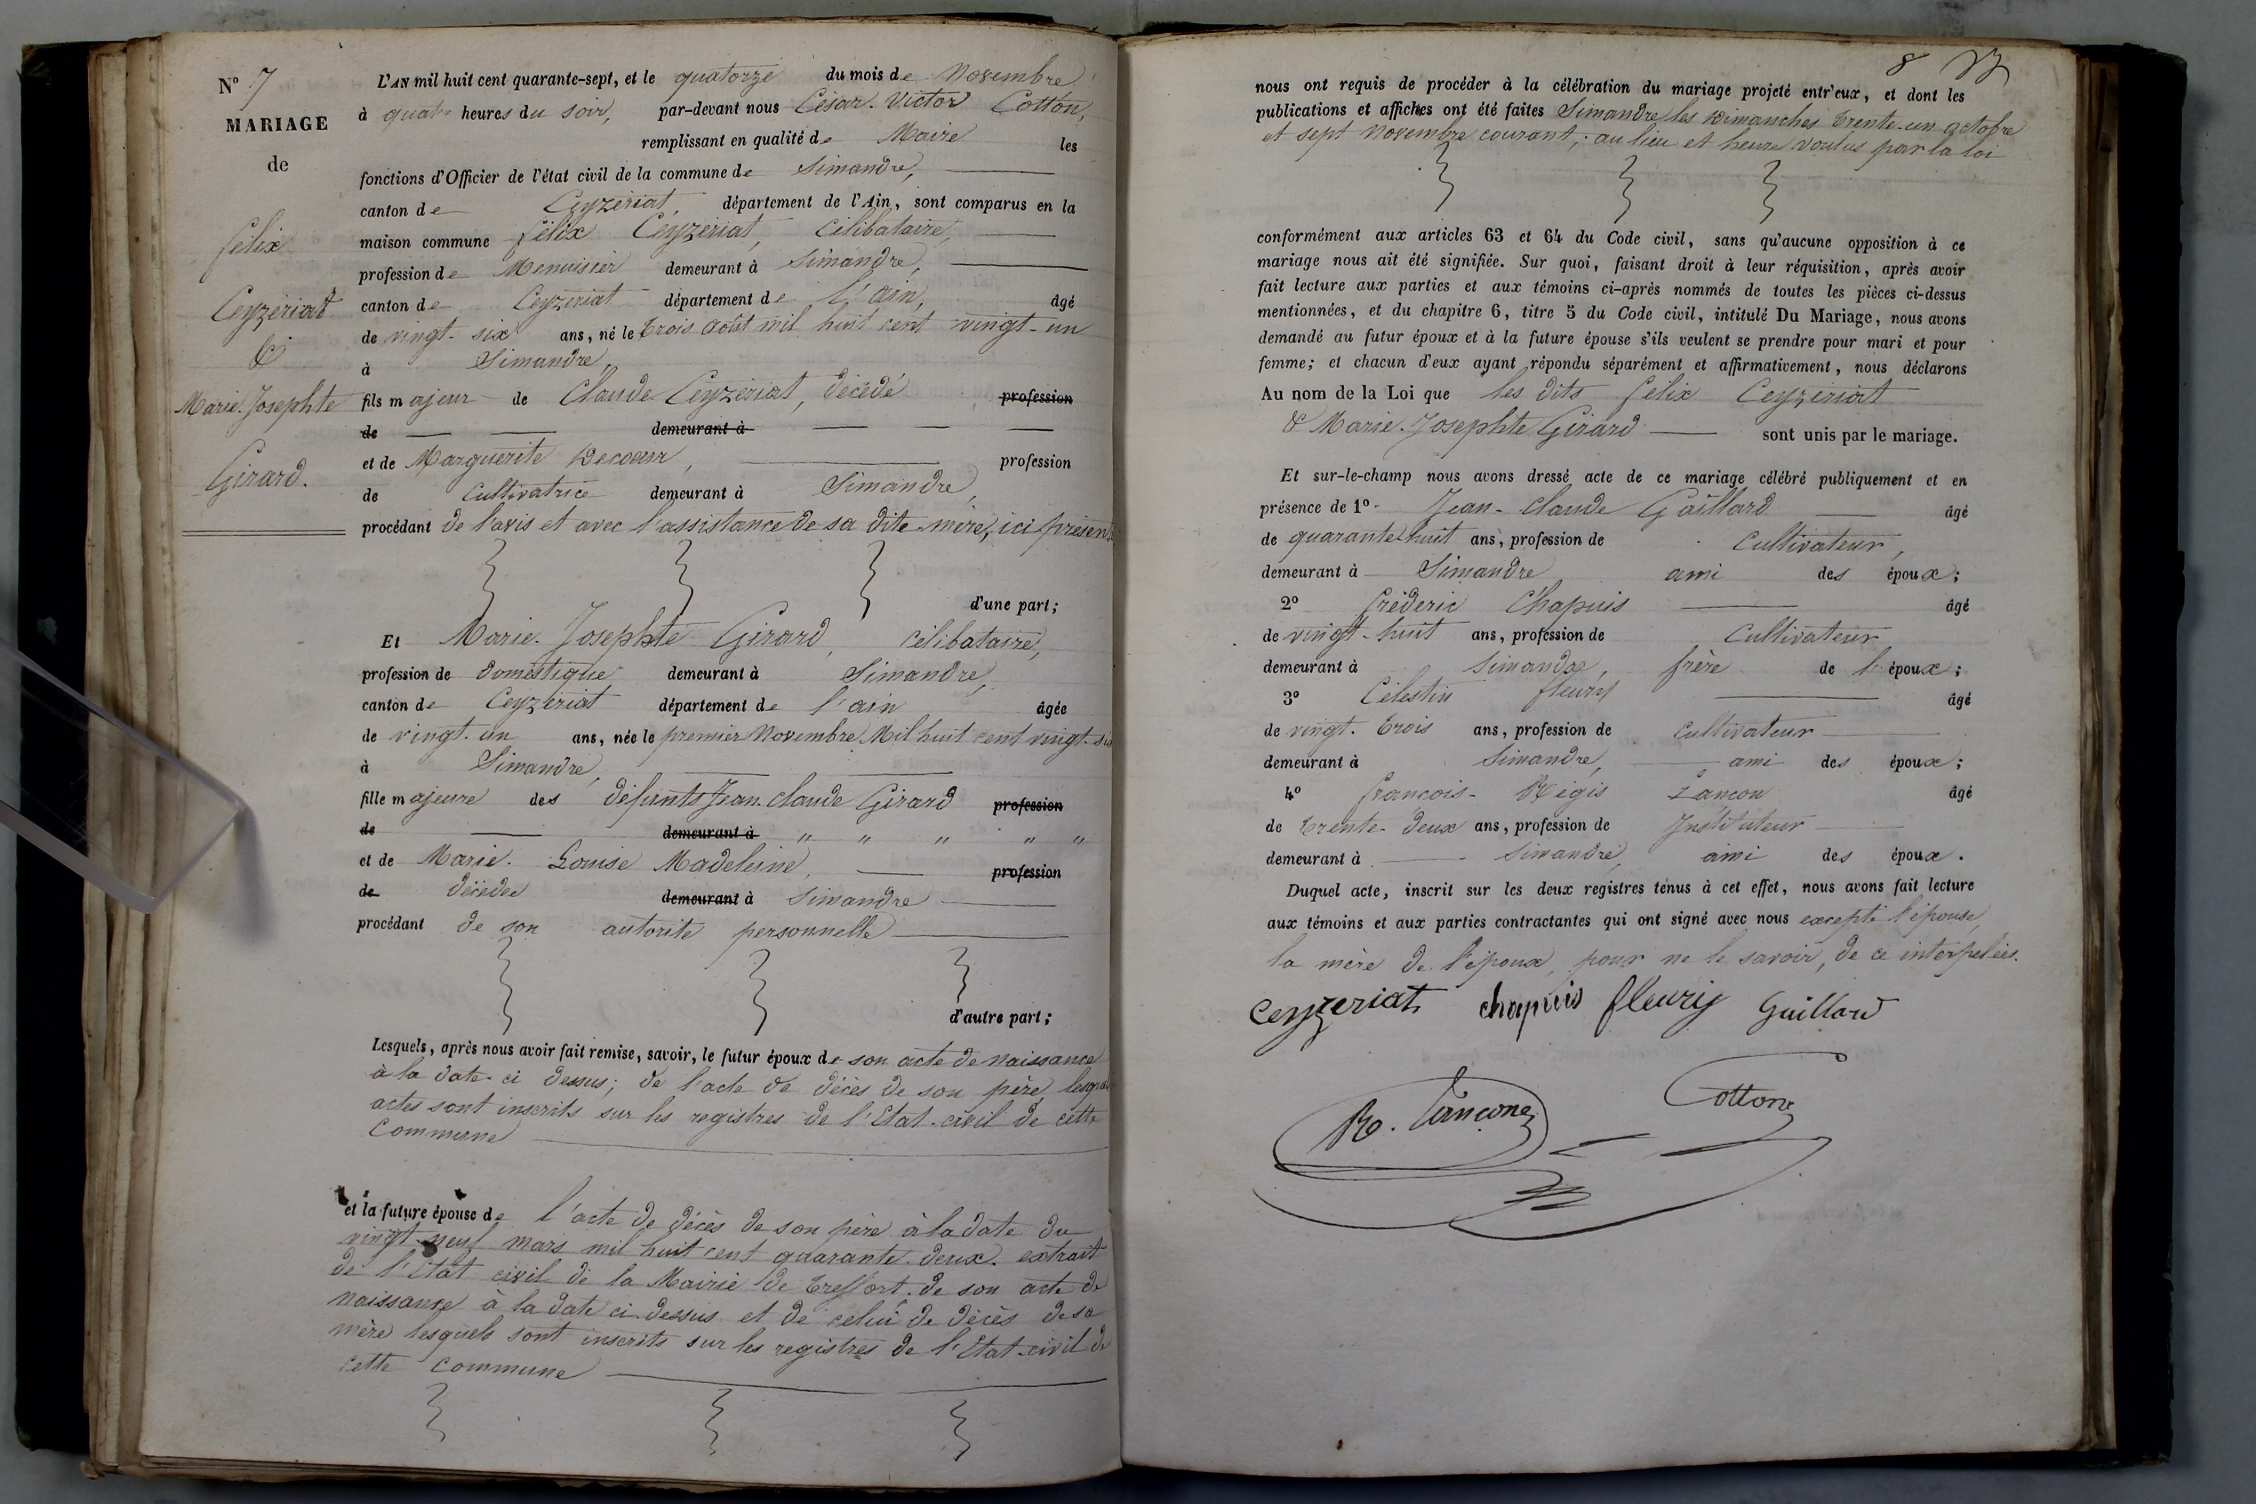 N° 7
MARIAGE
de
félix
Ceyzériat
&
Marie-Josephte
Girard.
L'AN mil huit cent quarante-sept, et le quatorze du mois de Novembre
à quatre heures du soir, par-devant nous César-Victor Cotton,
remplissant en qualité de Maire les
fonctions d'Officier de l'état civil de la commune de Simandre,
canton de Ceyzériat, département de l'Ain, sont comparus en la
maison commune félix Ceyzériat, célibataire,
profession de Menuisier demeurant à Simandre,
canton de Ceyzériat département de l'ain, âgé
de vingt-six ans, né le trois août mil huit cent vingt-un
à Simandre,
fils majeur de Claude Ceyzériat, décédé profession
de demeurant à
et de Marguerite Decoeur, profession
de Cultivatrice demeurant à Simandre,
procédant de l'avis et avec l'assistance de sa dite mère, ici présente
d'une part;
Et Marie-Josephte Girard, célibataire,
profession de domestique demeurant à Simandre,
canton de Ceyzériat département de l'ain âgée
de vingt-un ans, née le premier Novembre Mil huit cent vingt-six
à Simandre,
fille majeure des défunts Jean claude Girard profession
de demeurant à " " " " "
et de Marie-Louise Madeleine, profession
de décédée demeurant à Simandre
procédant de son autorité personnelle
d'autre part;
Lesquels, après nous avoir fait remise, savoir, le futur époux de son acte de naissance
à la date ci dessus; de l'acte de décès de son père, lesquels
actes sont inscrits sur les registres de l'Etat-civil de cette
Commune
et la future épouse de l'acte de décès de son père à la date du
vingt-neuf mars mil huit cent quarante-deux. extrait
de l'Etat civil de la Mairie de treffort. de son acte de
naissance à la date ci-dessus et de celui de décès de sa
mère lesquels sont inscrits sur les registres de l'Etat-civil de
cette commune
8
nous ont requis de procéder à la célébration du mariage projeté entr'eux, et dont les
publications et affiches ont été faites Simandre les Dimanches trente-un octobre
et sept Novembre courant; au lieu et heure voulus par la loi
conformément aux articles 63 et 64 du Code civil, sans qu'aucune opposition à ce
mariage nous ait été signifiée. Sur quoi, faisant droit à leur réquisition, après avoir
fait lecture aux parties et aux témoins ci-après nommés de toutes les pièces ci-dessus
mentionnées, et du chapitre 6, titre 5 du Code civil, intitulé Du Mariage, nous avons
demandé au futur époux et à la future épouse s'ils veulent se prendre pour mari et pour
femme; et chacun d'eux ayant répondu séparément et affirmativement, nous déclarons
Au nom de la Loi que les dits félix Ceyzériat
& Marie-Josephte Girard sont unis par le mariage.
Et sur-le-champ nous avons dressé acte de ce mariage célébré publiquement et en
présence de 1° Jean-claude Gaillard âgé
de quarante-huit ans, profession de Cultivateur,
demeurant à Simandre ami des époux;
2° fréderic Chapuis âgé
de vingt-huit ans, profession de Cultivateur
demeurant à Simandre, frère de l'époux;
3° Célestin fleury âgé
de vingt-trois ans, profession de Cultivateur
demeurant à Simandre, ami des époux;
4° françois-Régis Lançon âgé
de trente-deux ans, profession de Instituteur
demeurant à Simandre, ami des époux.
Duquel acte, inscrit sur les deux registres tenus à cet effet, nous avons fait lecture
aux témoins et aux parties contractantes qui ont signé avec nous excepté l'épouse,
la mère de l'époux, pour ne le savoir, de ce interpelées.
Ceyzeriat chapuis fleury Guillard
R. Lançon Cotton